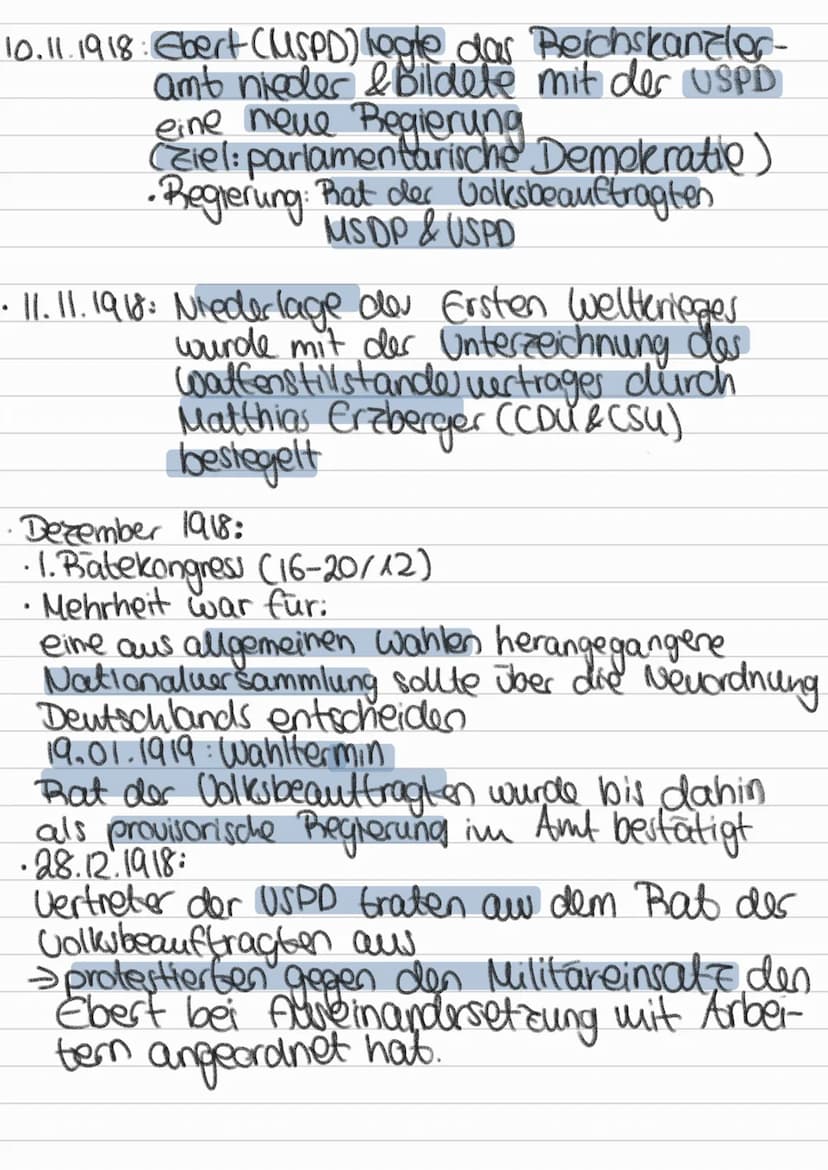 10.11.1918: Ebert (MSPD) legte das Reichskanzler-
amt nieder & Bildete mit der USPD
eine neue Regierung
(Ziel: parlamentarische Demokratie)
• Regierung: Rat der Volksbeauftragten
MSDP & USPD
• 11.11.1918: Niederlage des Ersten Weltkrieges
wurde mit der Unterzeichnung des
Waffenstillstandesvertrages durch
Matthias Erzberger (CDU & CSU)
besiegelt
• Dezember 1918:
• 1. Rätekongress (16-20/12)
• Mehrheit war für:
eine aus allgemeinen Wahlen herangegangene
Nationalversammlung sollte über die Neuordnung
Deutschlands entscheiden
19.01.1919: Wahltermin
Rat der Volksbeauftragten wurde bis dahin
als provisorische Regierung im Amt bestätigt
• 28.12.1918:
Vertreter der USPD traten aus dem Rat der
Volksbeauftragten aus
→ protestierten gegen den Militäreinsatz den
Ebert bei Auseinandersetzung mit Arbei-
tern angeordnet hat.